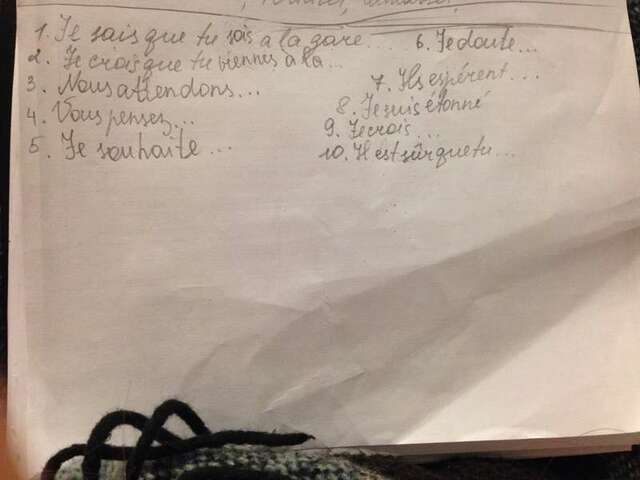 1. Je sais que tu sois a la gare...
2. Je crois que tu viennes a la...
3. Nous attendons...
4. Vous pensez...
5. Je souhaite...
6. Je doute...
7. Ils espérent...
8. Je suis étonné
9. Je crois...
10. Il est sûr que tu...